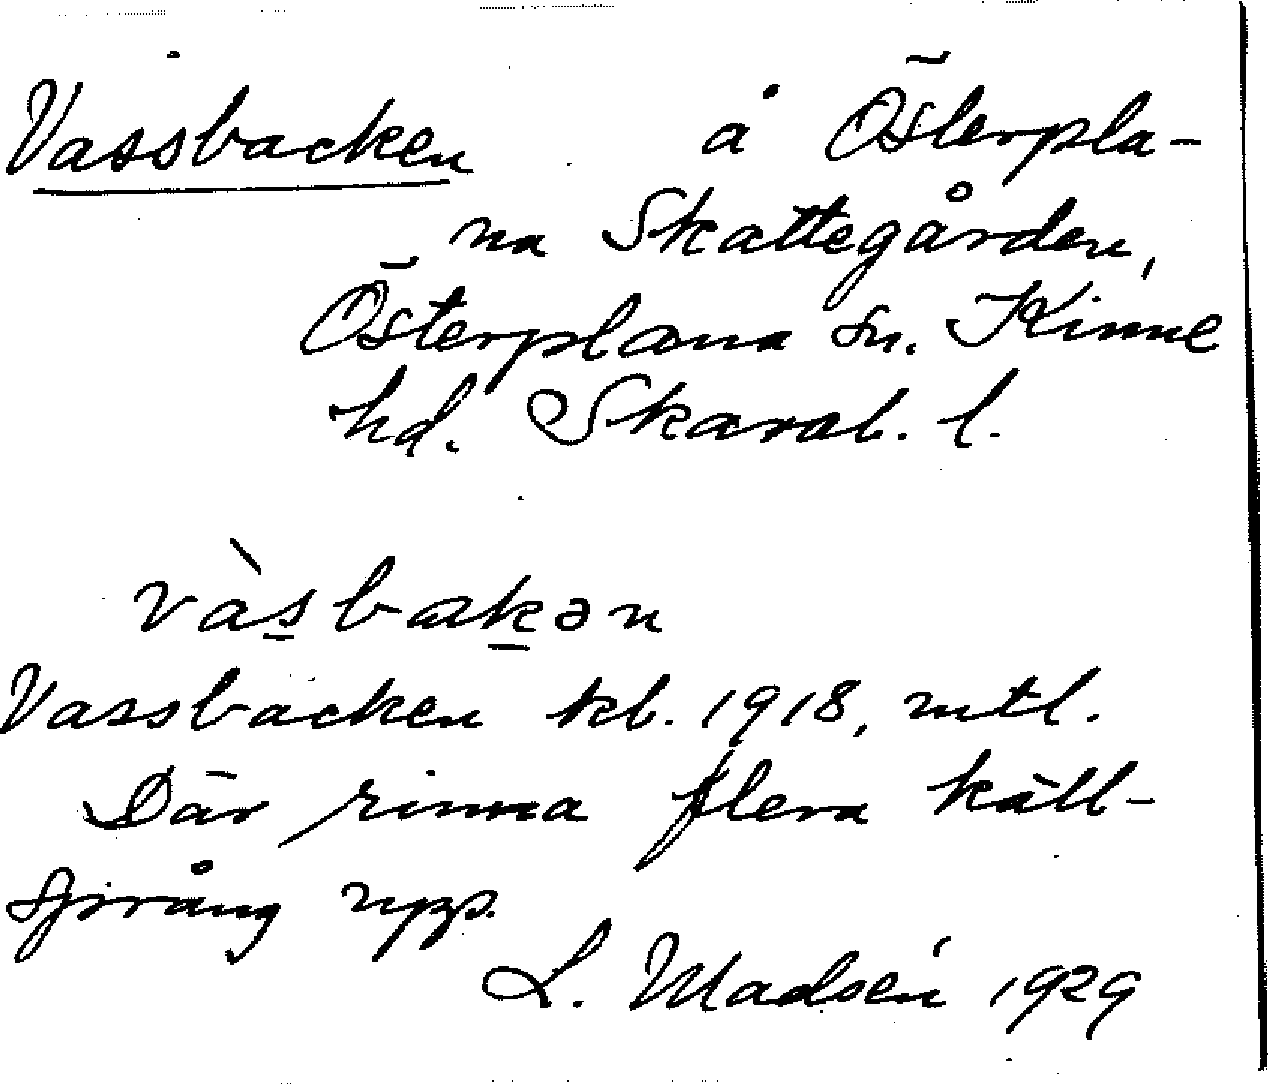 Vassbacken å Österpla-
na Skattegården,
Österplana sn. Kinne
hd. Skarab. l.
vàs̲bak̲ən
Vassbacken kb. 1918, mtl.
Där rinna flera käll-
språng upp.
L. Madsén 1929